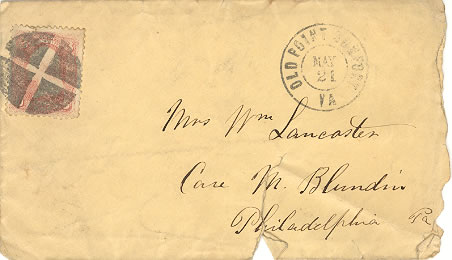 OLD POINT COMFORT
MAY
21
VA
Mrs Wm Lancaster
Care M. Blundin
Philadelphia Pa